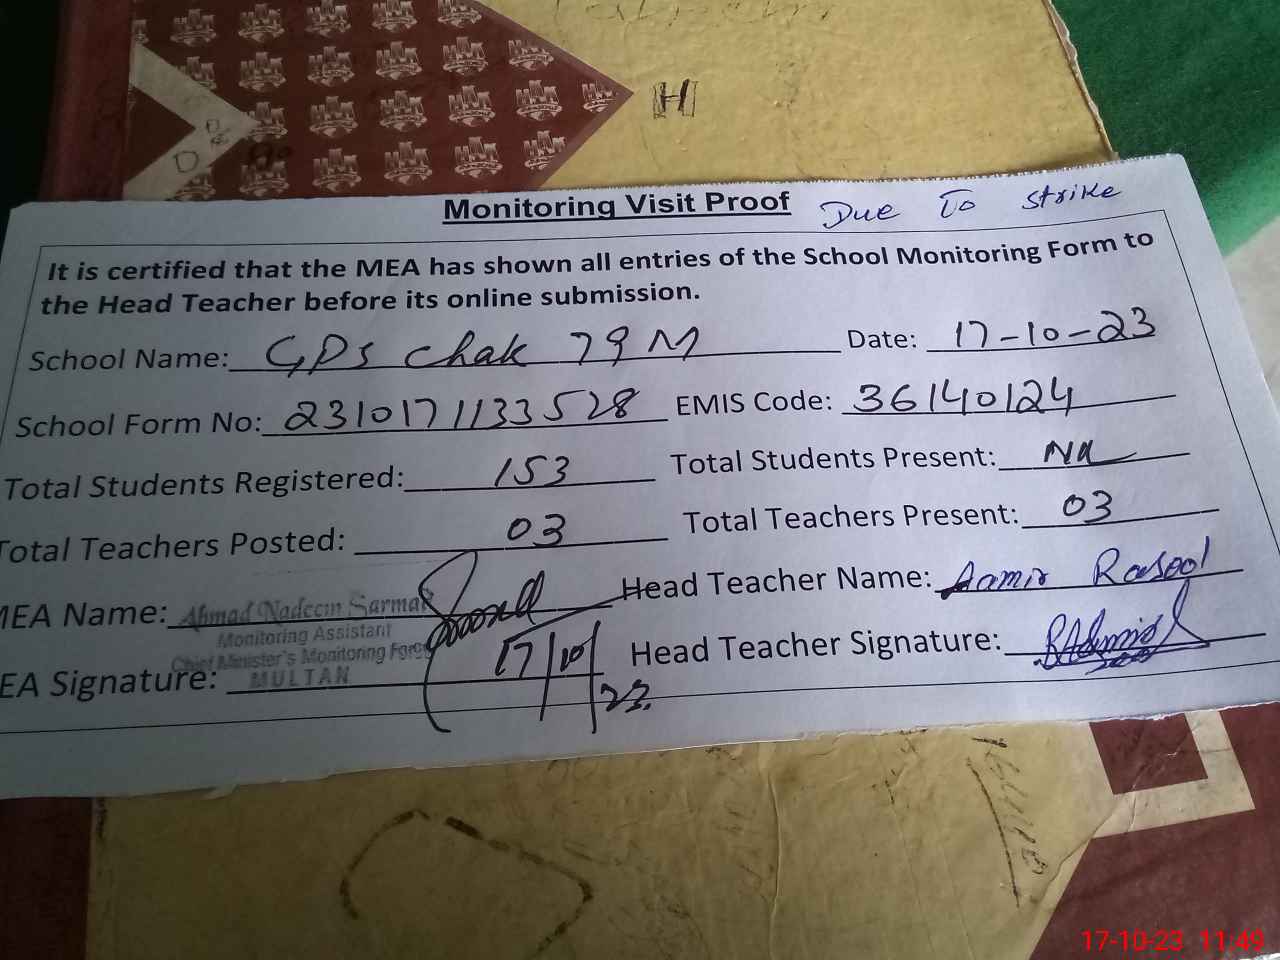 H
Monitoring Visit Proof Due To strike
It is certified that the MEA has shown all entries of the School Monitoring Form to
the Head Teacher before its online submission.
School Name: GPS Chak 79 M Date: 17-10-23
School Form No: 2310171133528 EMIS Code: 36140124
Total Students Registered: 153 Total Students Present: Nil
Total Teachers Posted: 03 Total Teachers Present: 03
MEA Name: Ahmad Nadeem Sarmad Head Teacher Name: Aamir Rasool
Monitoring Assistant
Chief Minister's Monitoring Force
MULTAN
EA Signature: 17/10/23. Head Teacher Signature:
17-10-23 11:49